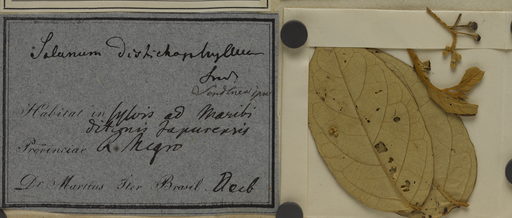 Solanum distichophyllum
Sendt.
Habitat in sylvis ad Maribi
ditionis Japurensis
Provinciae R. Negro
Dr. Martius Iter Brasil. Dcb